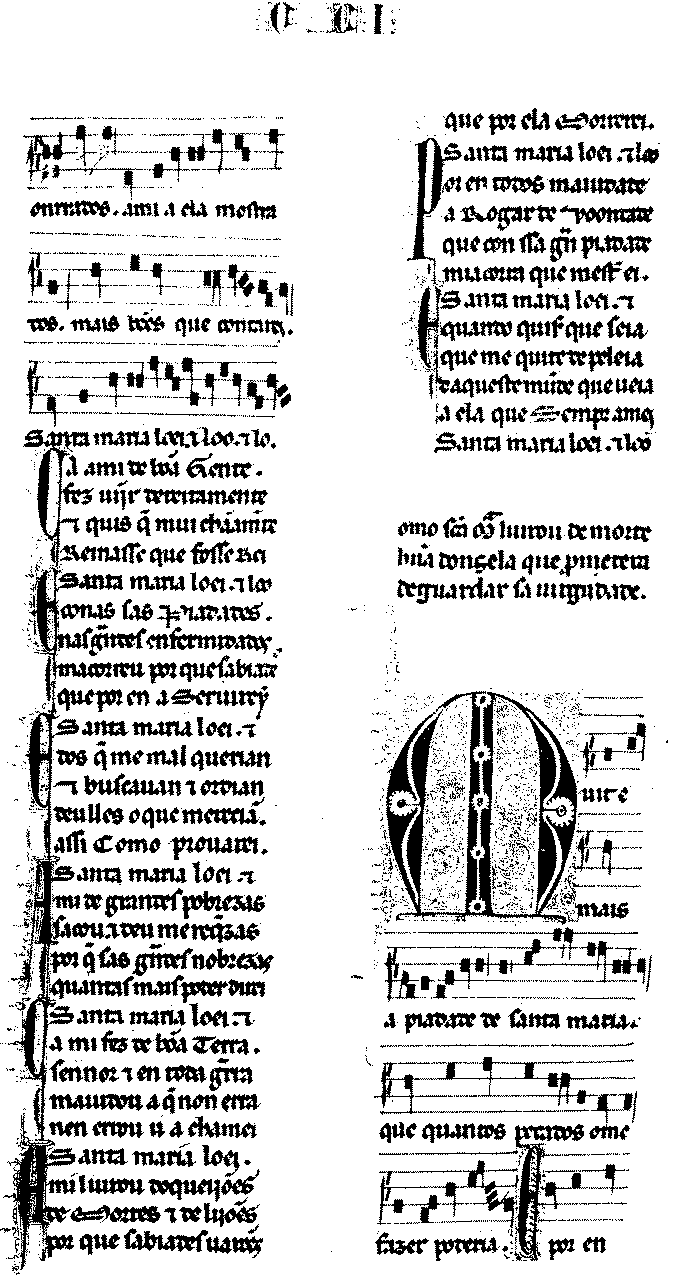 C C I
onrrados. a mi a ela mostra
dos. mais bẽes que contarei.
Santa maria loei ⁊ loo ⁊ lo.
Ca a mi de bõa Gente.
fez uĩir dereitamente
⁊ quis q̃ mui chãamẽte
Reinasse que fosse Rei
Santa maria loei ⁊ loo
E conas sas Piadades.
nas grãdes enfermidades
macorreu por que sabiades
que por en a Seruirey
Santa maria loei ⁊
E dos q̃ me mal querian
⁊ buscauan ⁊ ordian
deu lles o que merecíã.
assi Como prouarei.
Santa maria loei ⁊
A mi de grandes pobrezas
sacou ⁊ deu me reqẽzas
por q̃ sas grãdes nobrezas
quantas mais poder direi
Santa maria loei ⁊
Ca mi fez de bõa Terra.
sennor ⁊ en toda g̃rra
maiudou a q̃ non erra
nen errou u a chamei
Santa maria loei.
A mi liurou doqueijões
de Mortes ⁊ de lijões
por que sabiades uarões
que por ela Morrerei.
Santa maria loei. ⁊ loo
Por en todos maiudade
a Rogar de uoontade
que con ssa grã piadade
mi acorra que mest̃ ei.
Santa maria loei. ⁊
E quando quiser que seia
que me quite de peleia
daqueste mũdo que ueia
a ela que Sempre amey
Santa maria loei. ⁊ loo
Como sc̃a M̃ liurou de morte
hũa donzela que prometera
de guardar sa uirgĩidade.
Muit e
mais
a piadade de santa maria.
que quantos pecados ome
fazer poderia. E por en